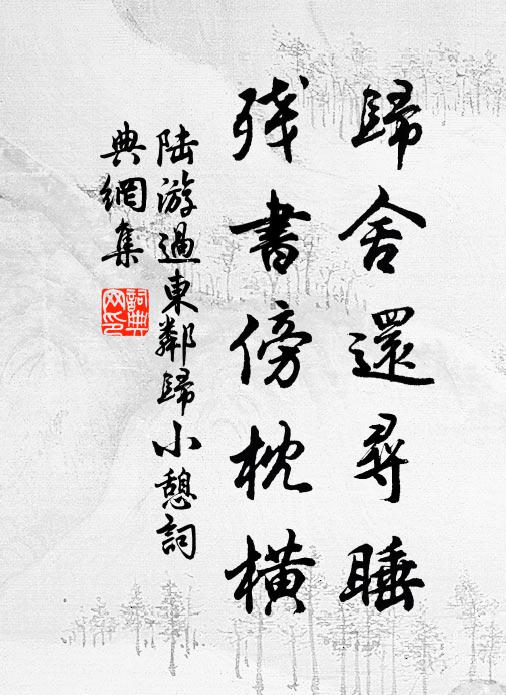 歸舍還尋睡
殘書傍枕橫
陸游過東鄰歸小憩詞
典網集
詞典
网印